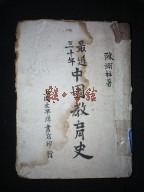 陳翊林著
最近三十年
中國教育史
上海太平洋書店印行